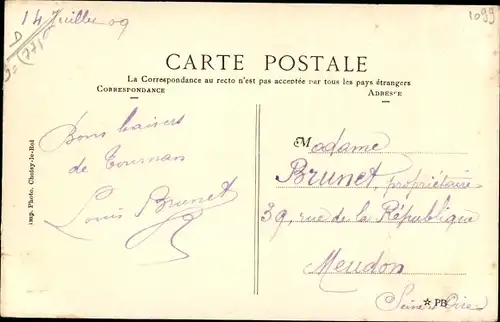 14 Juillet 09
1099
(77)
CARTE POSTALE
La Correspondance au recto n'est pas acceptée par tous les pays étrangers
CORRESPONDANCE
ADRESSE
Bons baisers
de Tournan
Louis Brunet
Madame
Brunet, propriétaire
39, rue de la République
Meudon
Seine & Oise
Imp. Photo. Choisy-le-Roi
☆ PB